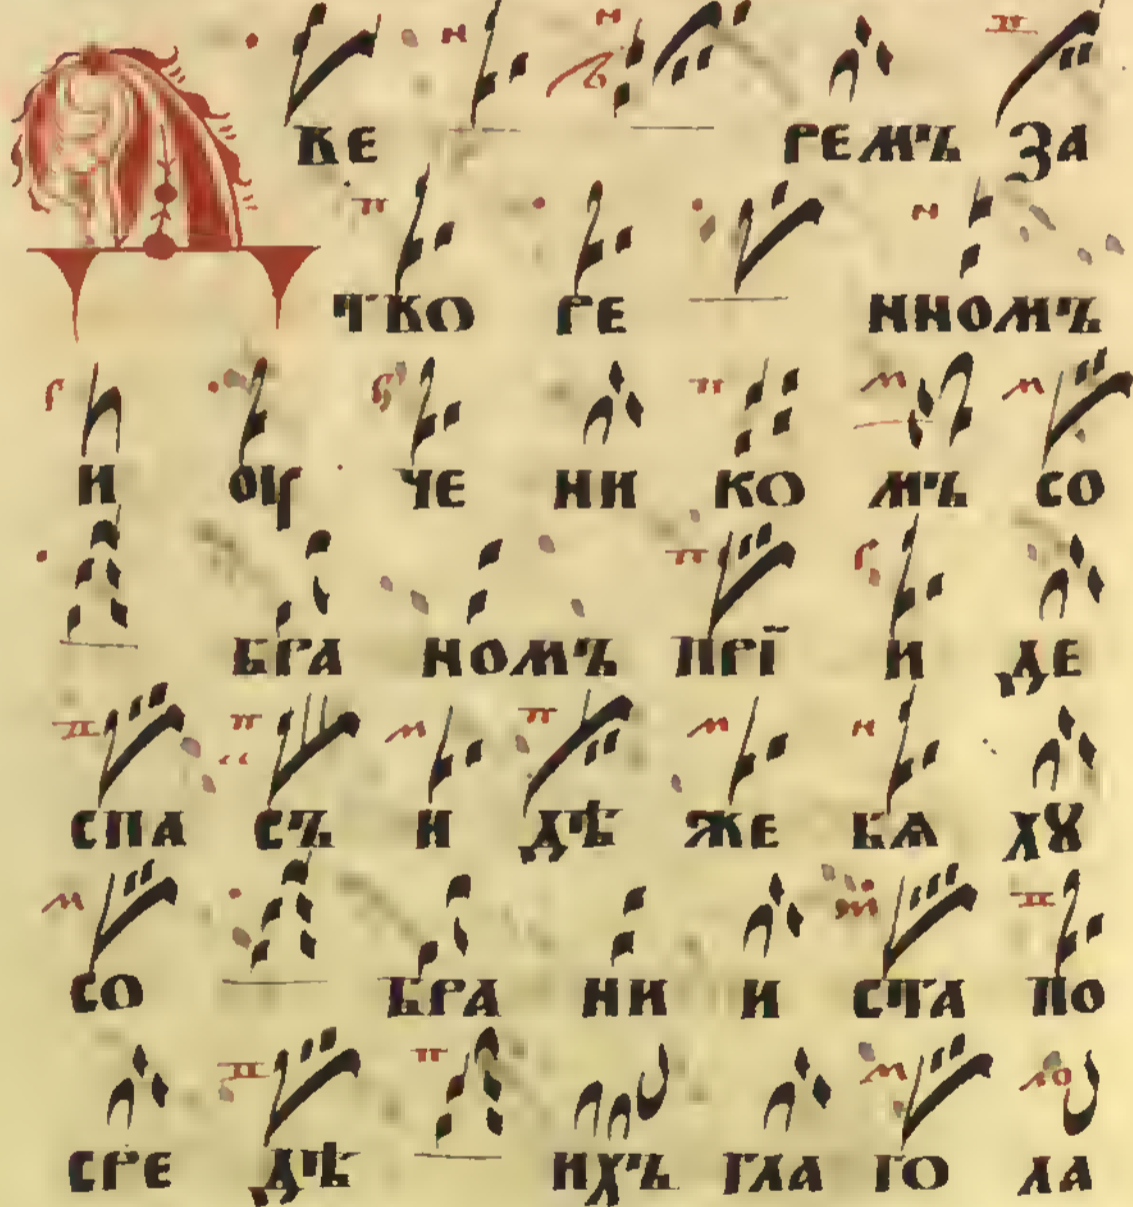 Д ВЕ РЕМЪ ЗА
ТВО РЕ ННОМЪ
И ОУ ЧЕ НИ КО МЪ СО
БРА НОМЪ ПРЇ И ДЕ
СПА СЪ И ДѢ ЖЕ БѦ ХꙊ
СО БРА НИ И СТА ПО
СРЕ ДѢ ИХЪ ГЛА ГО ЛА